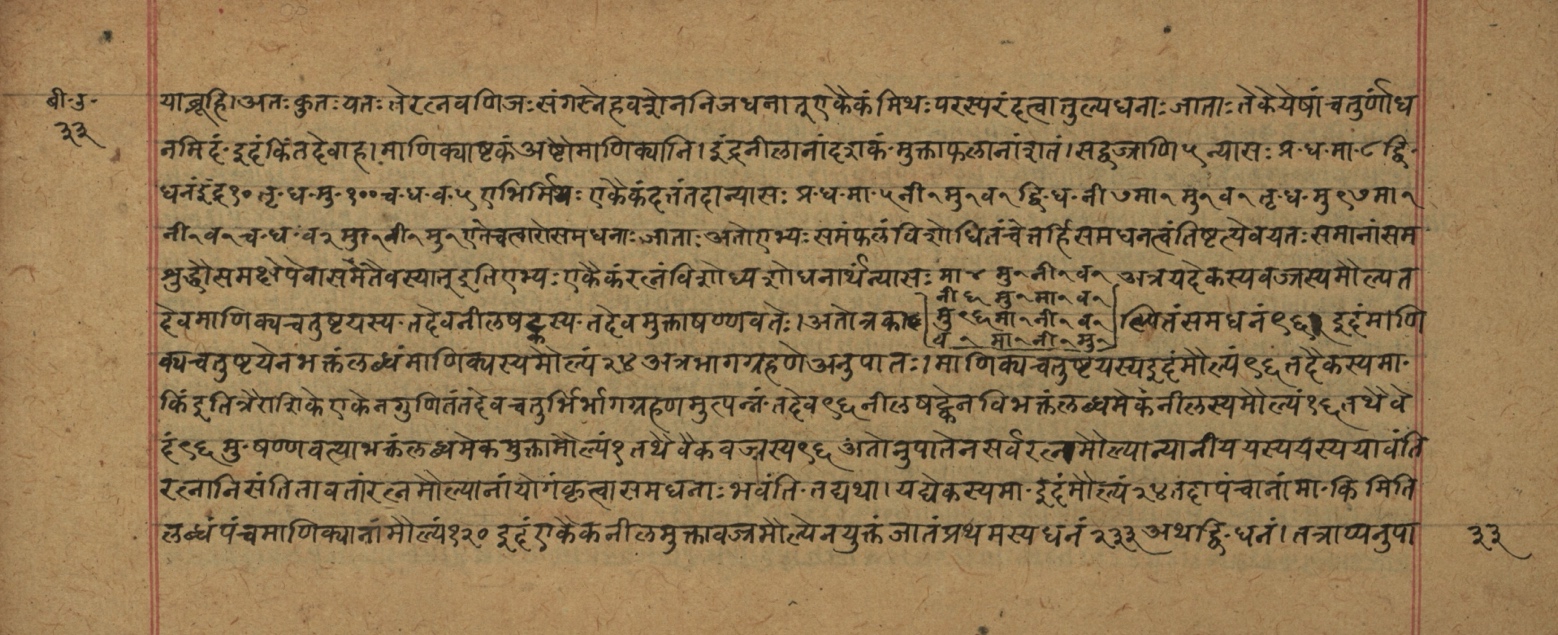 बी॰उ॰
३३
याब्रूहि।अतःकुतःयतःतेरत्नवणिजःसंगस्नेहवशेननिजधनात्एकैकंमिथःपरस्परंदत्वातुल्यधनाःजाताःतेकेयेषांचतुर्णांध
नमिदं॰इदंकिंतदेवाह।माणिक्याष्टकंअष्टौमाणिक्यानि।इंद्रनीलानांदशकं॰मुक्ताफलानांशतं।सद्वज्राणि५न्यासःप्र॰ध॰मा॰८द्वि॰
धनंइंद्र१०तृ॰ध॰मु॰१००च॰ध॰व॰५एभिर्मिथःएकैकंदत्तंतदान्यासःप्र॰ध॰मा॰५नी१मु१व१द्वि॰ध॰नी७मा१मु१व१तृ॰ध॰मु९७मा१
नी१व१च॰ध॰व२मा१नी१मु१एतेचत्वारोसमधनाःजाताःअतोएभ्यःसमंफलंविशोधितंचेत्तर्हिसमधनत्वंतिष्टत्येवयतःसमानांसम
श्रुद्धौसमशेषेवासमतैवस्यात्इतिएभ्यःएकैकंरत्नंविशोध्यशोधनार्थंन्यासःमा४मु१नी१व१अत्रयदेकस्यवज्रस्यमौल्यंत
नी६मु१मा१व१
देवमाणिक्यचतुष्टयस्य॰तदेवनीलषट्कस्य॰तदेवमुक्ताषण्णवतेः।अतोत्र मु९६मा१नी१व१ ल्पितंसमधनं९६।इदंमाणि
व१मा१नी१मु१
क्यचतुष्टयेनभक्तंलब्धंमाणिक्यस्यमौल्यं२४अत्रभागग्रहणेअनुपातः।माणिक्यचतुष्टयस्यइदंमौल्यं९६तदैकस्यमा॰
किंइतित्रैराशिकेएकेनगुणितंतदेवचतुर्भिर्भागग्रहणमुत्पन्नं॰तदेव९६नीलषट्केनविभक्तंलब्धमेकंनीलस्यमौल्यं१६तथैवे
दं९६मु॰षण्णवत्याभक्तंलब्धमेकमुक्तामौल्यं१तथैवैकवज्रस्य९६अतोनुपातेनसर्वरत्नमौल्यान्यानीययस्ययस्ययावंति
रत्नानिसंतितावतांरत्नमौल्यानांयोगंकृत्वासमधनाःभवंति॰तद्यथा।यद्येकस्यमा॰इदंमौल्यं२४तदापंचानांमा॰किमिति
लब्धंपंचमाणिक्यानांमौल्यं१२०इदंएकैकनीलमुक्तावज्रमौल्येनयुक्तंजातंप्रथमस्यधनं२३३अथद्वि॰धनं।तत्राप्यनुपा
३३